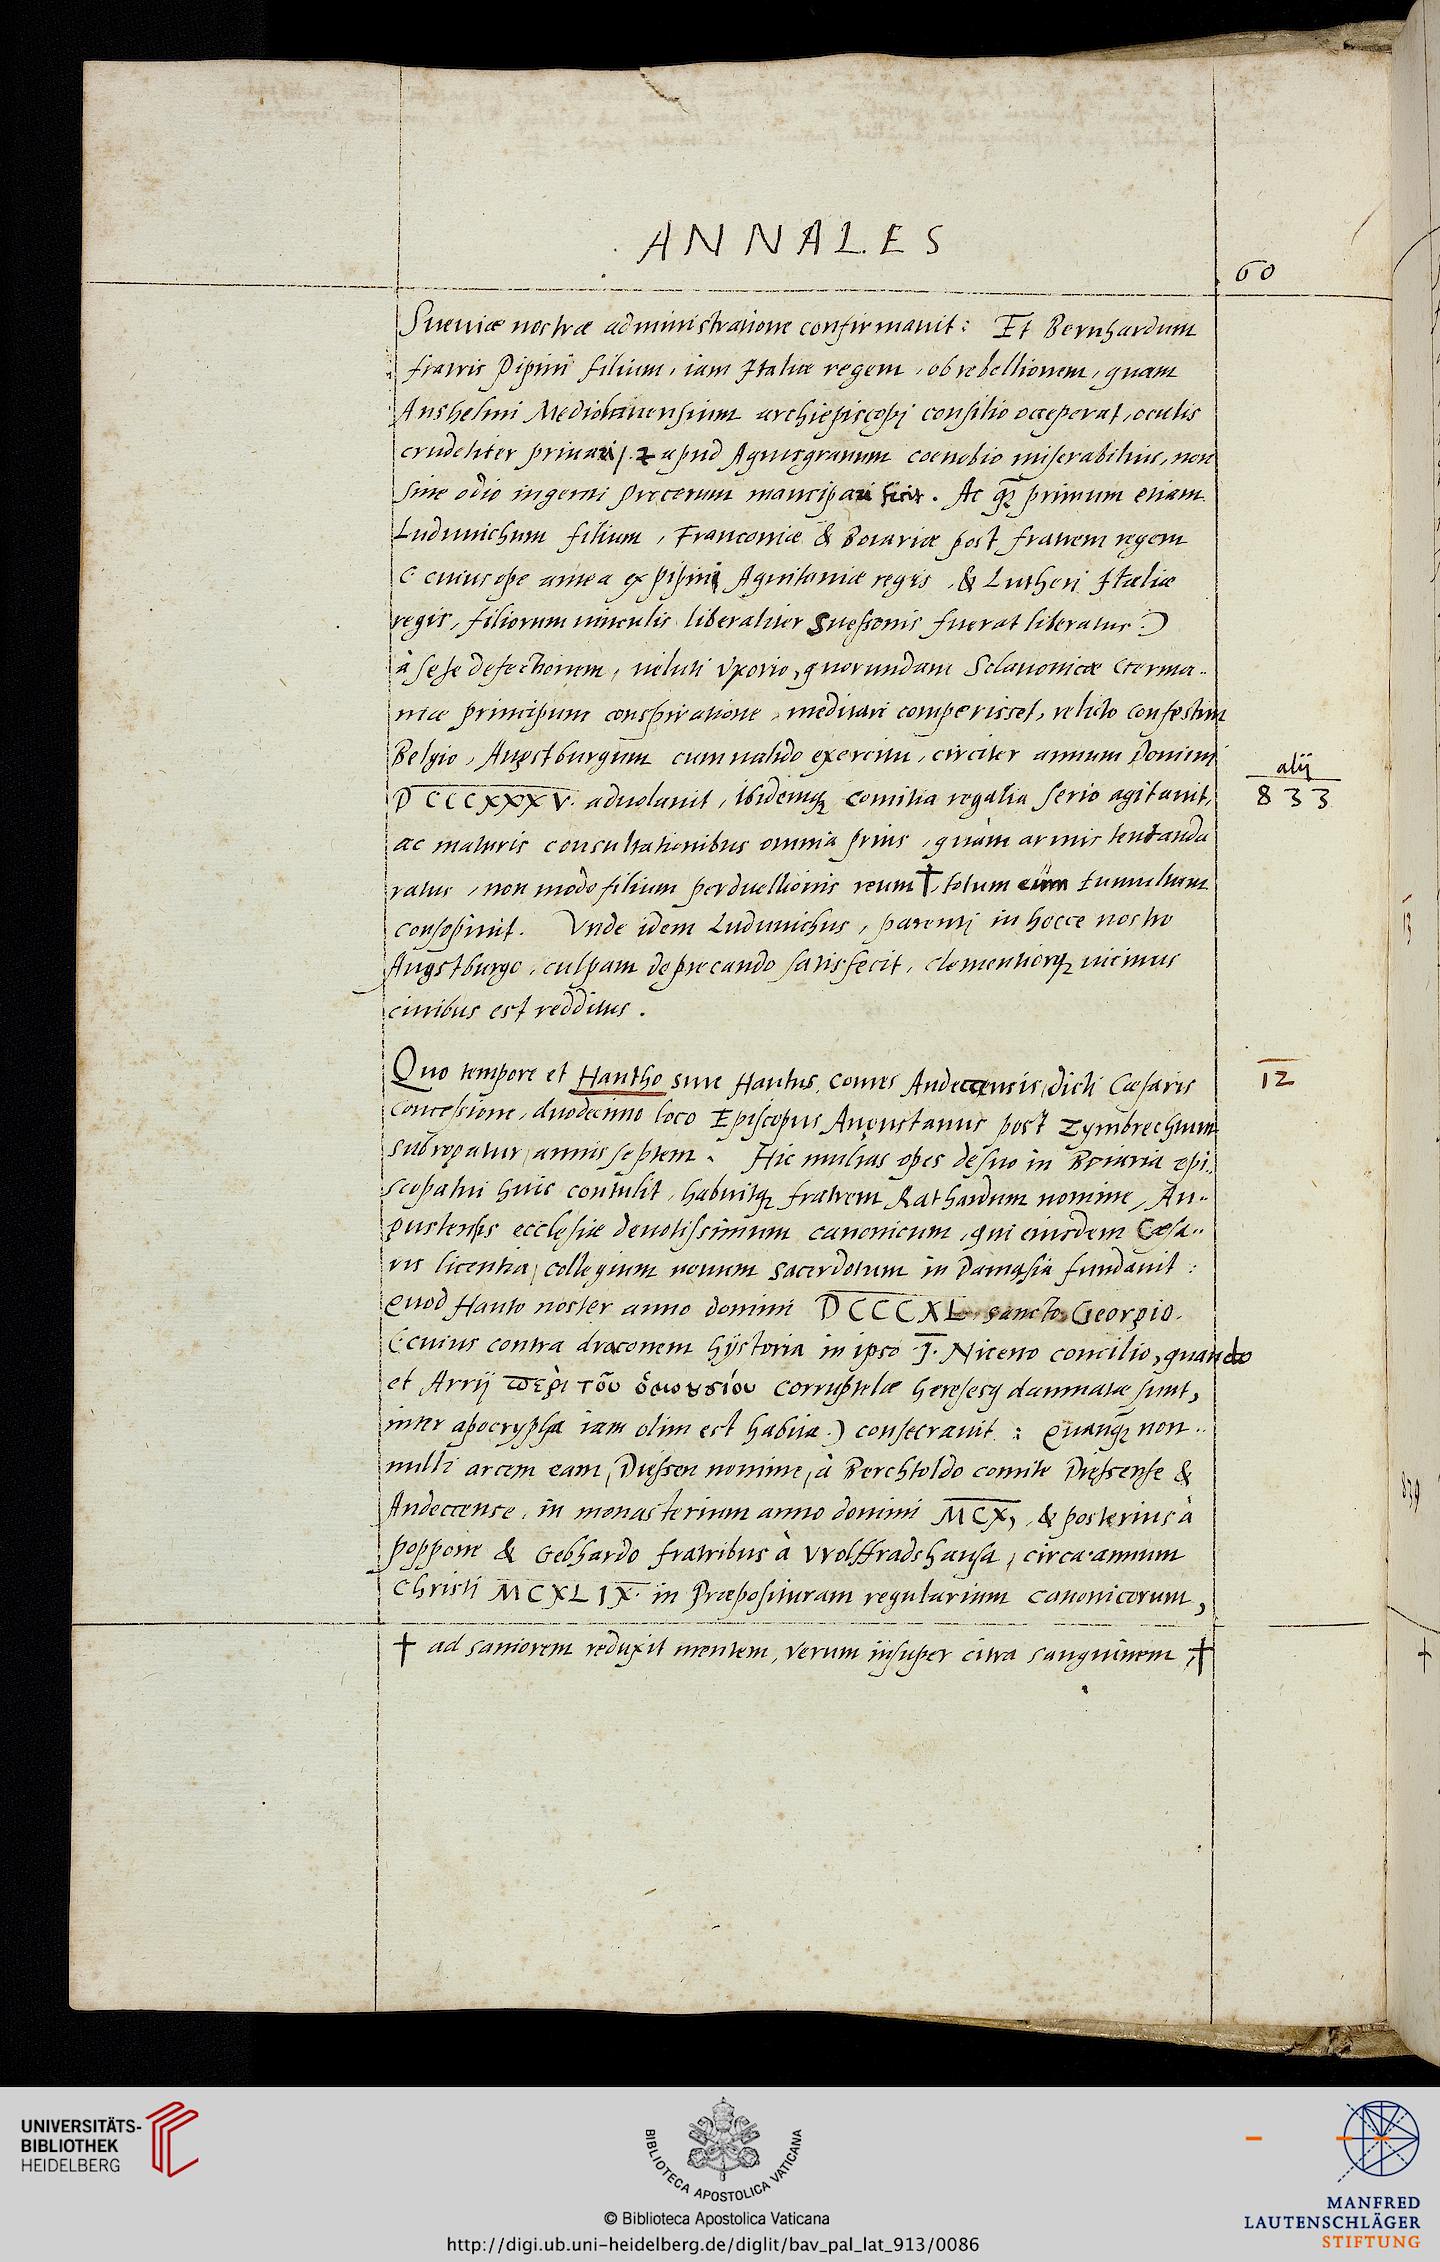 ANNALES
60
Sueuiæ nostræ administratione confirmauit: Et Bernhardum
fratris Pipini filium, iam Italiæ regem, ob rebellionem, quam
Anshelmi Mediolanensium archiepiscopi consilio occeperat, oculis
crudeliter priuari, & apud Aquisgranum coenobio miserabilius, non
sine odio ingenti procerum mancipari fecit. Ac primum etiam
Luduuichum filium, Franconiæ & Boiariæ post fratrem regem
(cuius ope antea ex Pipini Aquitaniæ regis, & Lutheri Italiæ
regis, filiorum uinculis liberaliter Suessonis fuerat liberatus.)
à sese defectionem, ueluti uxorio, quorundam Sclauonicæ Germa-
niæ principum conspiratione, meditari comperisset, relicto confestim
Belgio, Augstburgum cum ualido exercitu, circiter annum Domini
alij
833
DCCCXXXV. aduolauit, ibidemq; comitia regalia serio agitauit,
ac maturis consultationibus omnia prius, quàm armis tentanda
ratus, non modo filium perduellionis reum †, totum eum tumultum
consopiuit. Vnde idem Luduuichus, parenti in hocce nostro
Augstburgo, culpam deprecando satisfecit, clementiorq; uicinus
ciuibus est redditus.
Quo tempore et Hantho siue Hantus, comes Andecensis, dicti Cæsaris
12
concessione, duodecimo loco Episcopus Augustanus post Zymbrechtum
subrogatur annis septem. Hic multas opes de suo in Boiaria epi-
scopatui huic contulit, habuitq; fratrem Rathardum nomine, Au-
gustensis ecclesiæ deuotissimum canonicum, qui eiusdem Cæsa-
ris licentia, collegium nouum sacerdotum in Damasia fundauit:
Quod Hanto noster anno domini DCCCXL sancto Georgio.
(cuius contra draconem hystoria in ipso I. Niceno concilio, quando
et Arrij περὶ τοῦ ὁμουσίου corruptelæ heresesq; damnatæ sunt,
inter apocrypha iam olim est habita.) consecrauit: Quanq; non-
nulli arcem eam, Diessen nomine, à Berchtoldo comite Diessense &
Andeccense, in monasterium anno domini MCX, & posterius à
Poppone & Gebhardo fratribus à Wolffradshausa, circa annum
Christi MCXLIX. in Præposituram regularium canonicorum,
† ad saniorem reduxit mentem, verum insuper citra sanguinem, †
UNIVERSITÄTS-
BIBLIOTHEK
HEIDELBERG
BIBLIOTECA APOSTOLICA VATICANA
© Biblioteca Apostolica Vaticana
http://digi.ub.uni-heidelberg.de/diglit/bav_pal_lat_913/0086
MANFRED
LAUTENSCHLÄGER
STIFTUNG